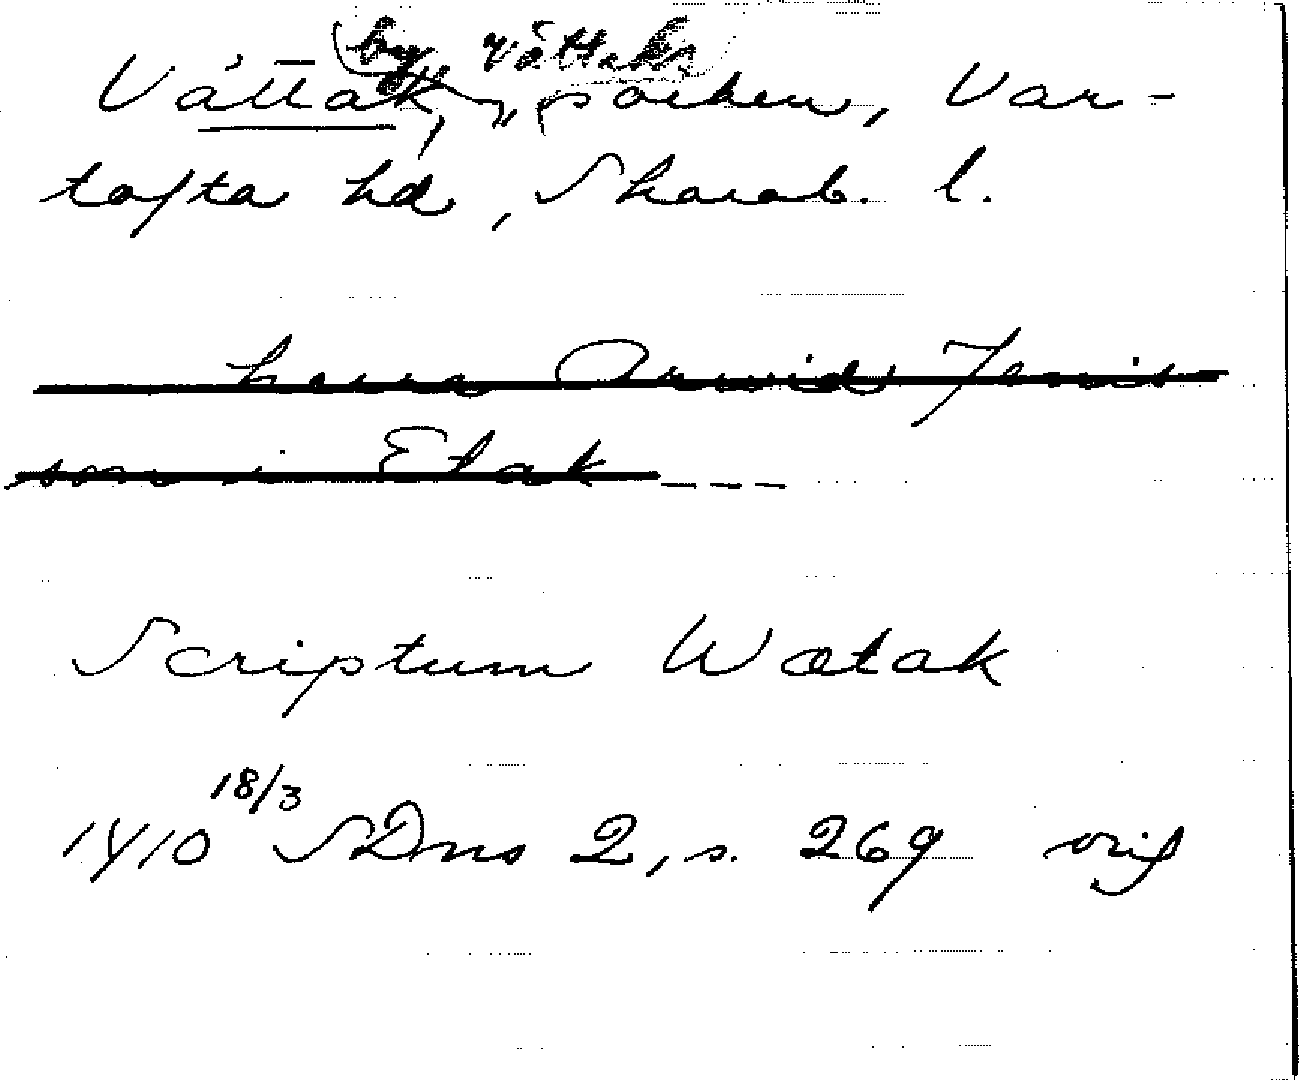 by Vättaks
Vättak, " socken, Var-
tofta hd, Skarab. l.
hans Arvid Jenis
sons i Etak ---
Scriptum Wætak
1410 18/3 SDns 2, s. 269 orig